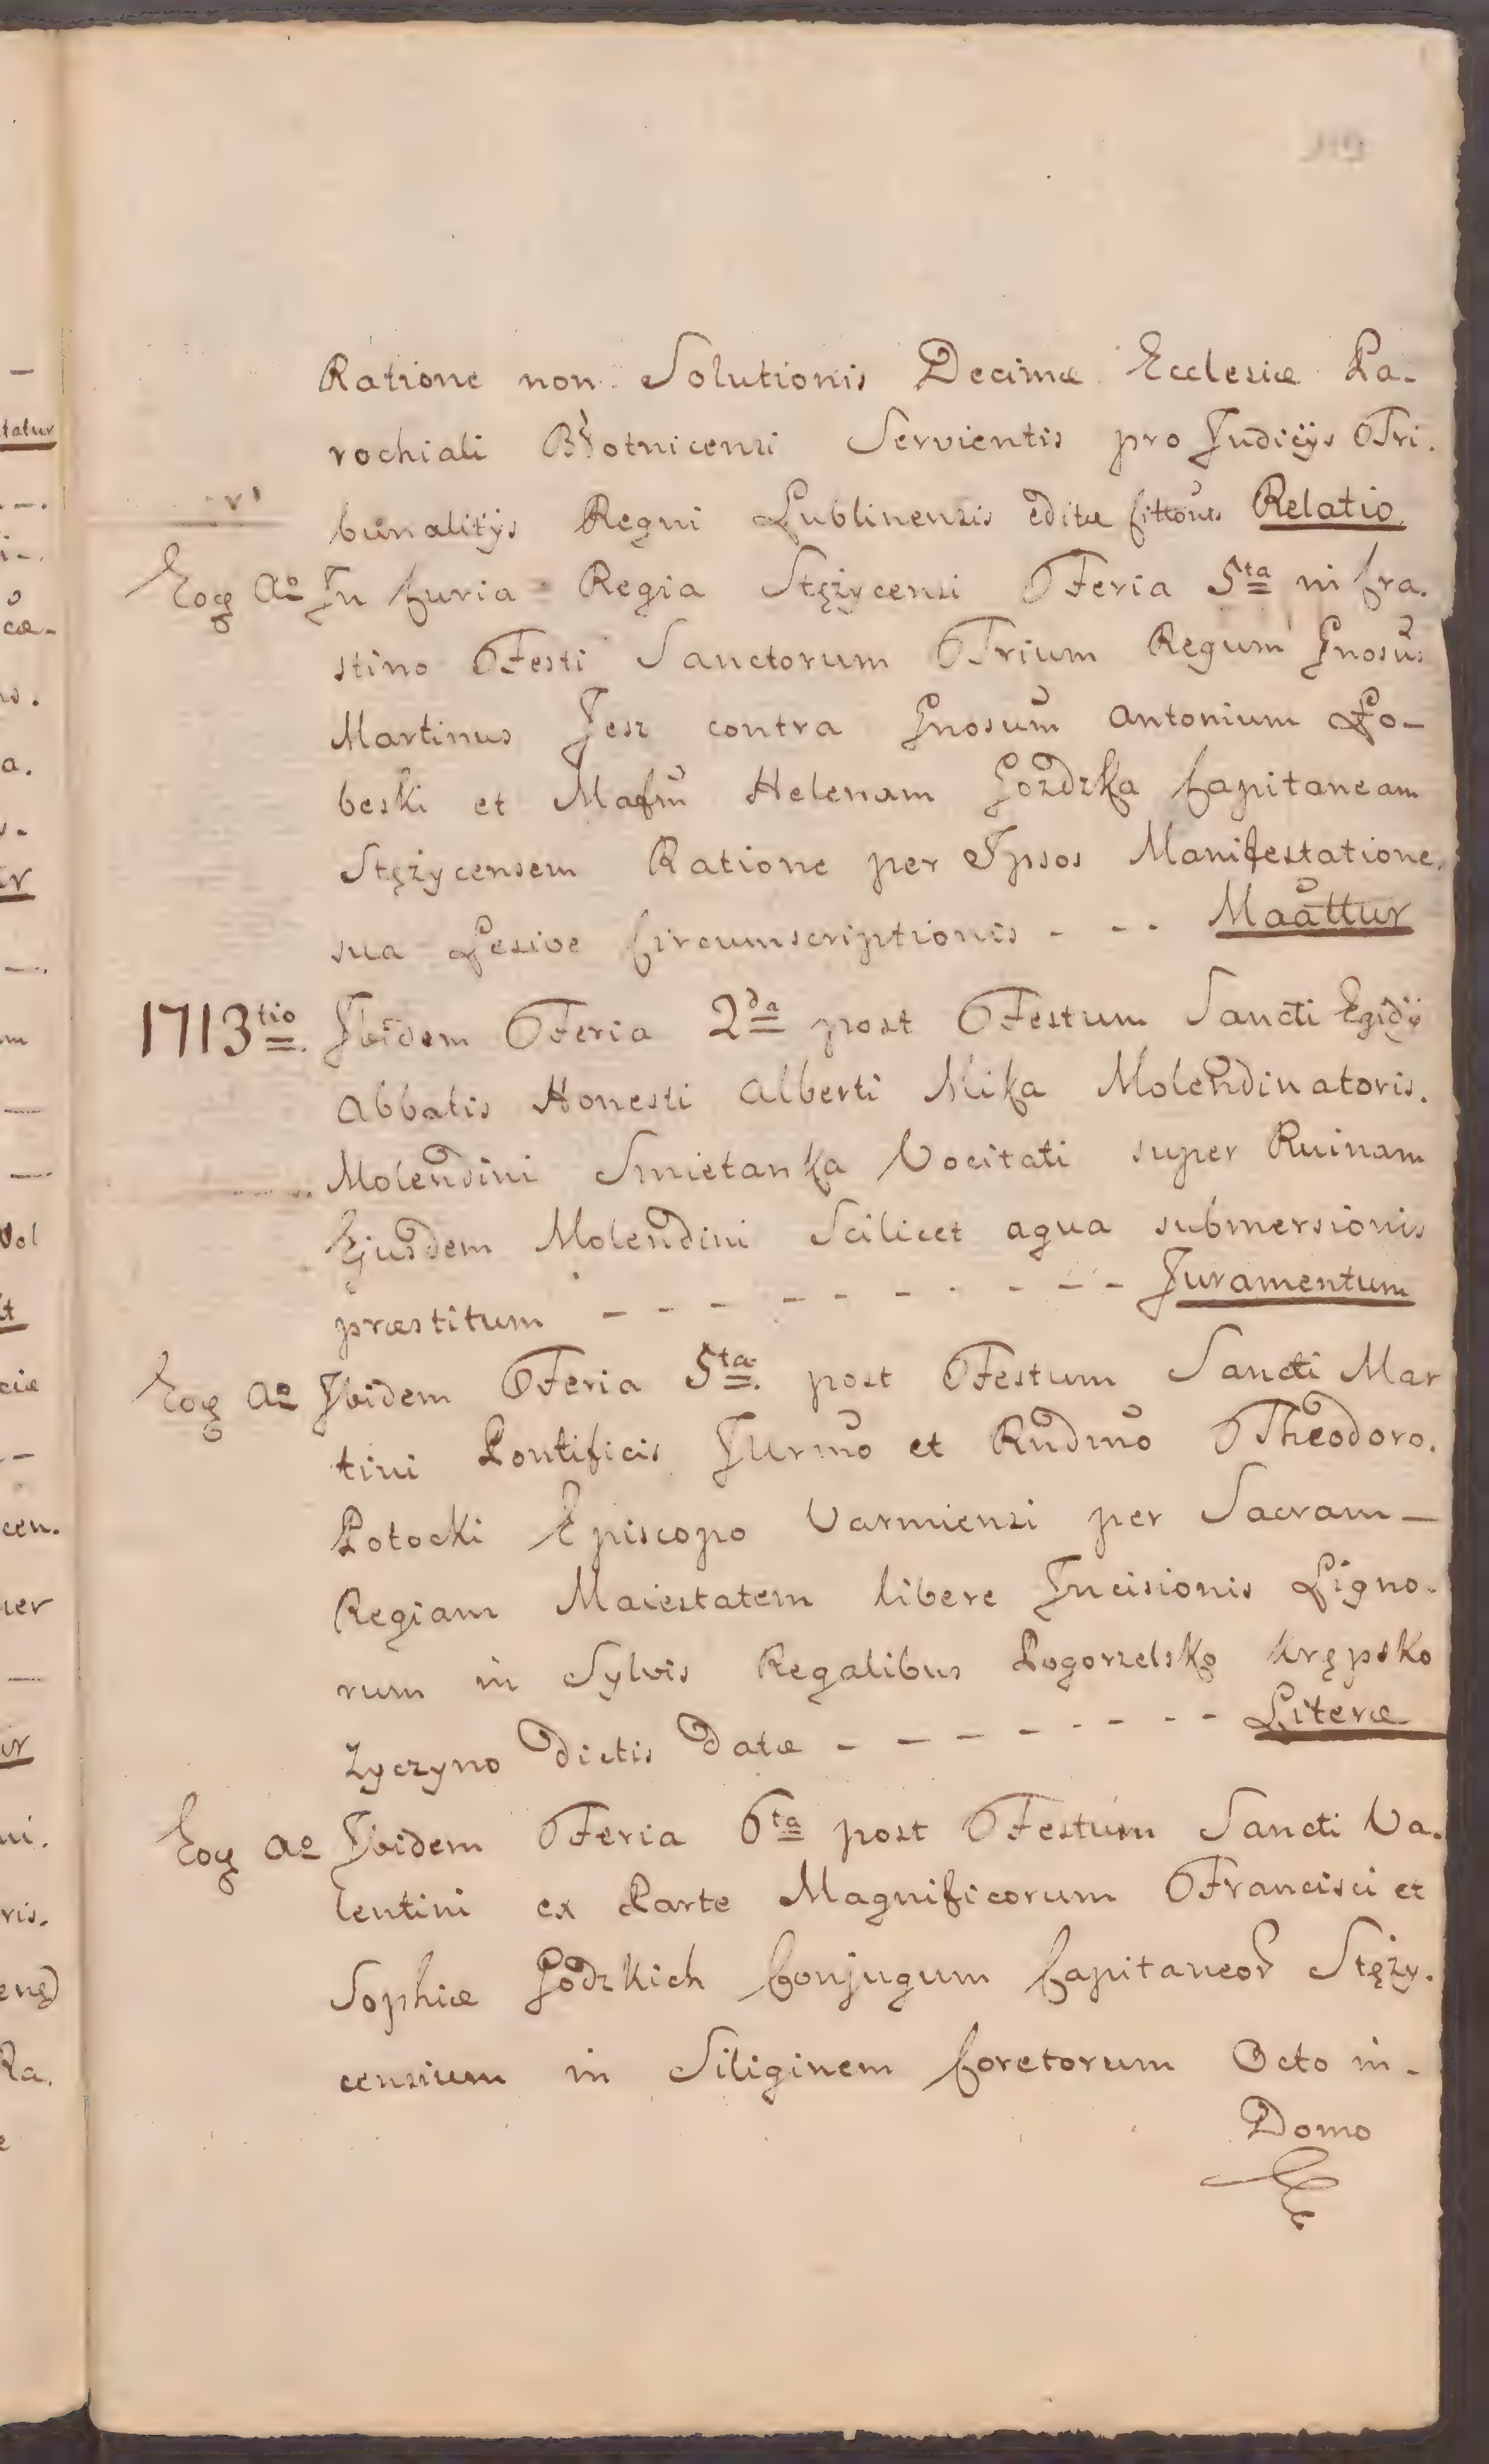 Ratione non Solutionis Decimæ Ecclesiæ Pa-
rochiali Błotnicensi Servientis pro Judicijs Tri.
bunalitijs Regni Lublinensis editæ Cittõnes Relatio
Eoq̃ Aº In Curia Regia Stężycensi Feria 5ta in Cra.
stino Festi Sanctorum Trium Regum Gnosus
Martinus Jesz contra Gnosum Antonium Ło-
beski et Mafm̃ Helenam Gozdzka Capitaneam
Stężycensem Ratione per Ipsos Manifestatione.
sua Lesive Circumscriptionis - - - Maãttur
1713tio. Ibidem Feria 2da post Festum Sancti Egidÿ
Abbatis Honesti Alberti Mika Molendinatoris.
Molendini Smietanka Vocitati super Ruinam
Ejusdem Molendini Scilicet aqua submersionis
præstitum - - - - - - - - - Juramentum
Eoq̃ Aº Ibidem Feria 5ta. post Festum Sancti Mar
tini Pontificis Illrmo et Rndmo Theodoro.
Potocki Episcopo Varmiensi per Sacram -
Regiam Maiestatem libere Incisionis Ligno.
rum in Sylvis Regalibus Pogorzelsko Krępsko
Zyczyno dictis datæ - - - - - - - - Literæ
Eoq̃ Aº Ibidem Feria 6ta post Festum Sancti Va.
lentini ex Parte Magnificorum Francisci et
Sophiæ Godzkich Conjugum Capitaneor̃ Stęży.
censium in Siliginem Coretorum Octo in -
Domo